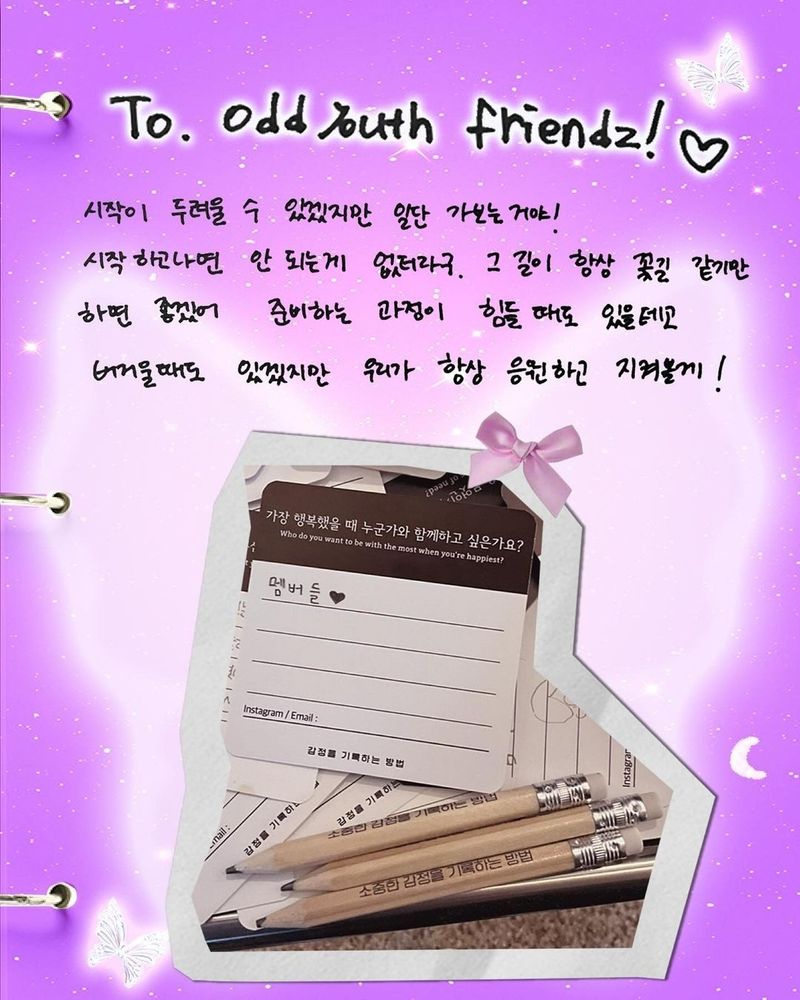 To. odd youth friendz! ♡
시작이 두려울 수 있겠지만 일단 가보는거야!
시작하고나면 안 되는게 없더라구. 그 길이 항상 꽃길 같기만
하면 좋겠어 준비하는 과정이 힘들 때도 있을테고
버거울때도 있겠지만 우리가 항상 응원하고 지켜볼게!
of need?
가장 행복했을 때 누군가와 함께하고 싶은가요?
Who do you want to be with the most when you're happiest?
멤버들 ♥
Instagram / Email :
감정을 기록하는 방법
Instagra
mail :
감정을 기록하는 방법
감정을 기록
소중한 감정을 기록하는 방법
소중한 감정을 기록하는 방법